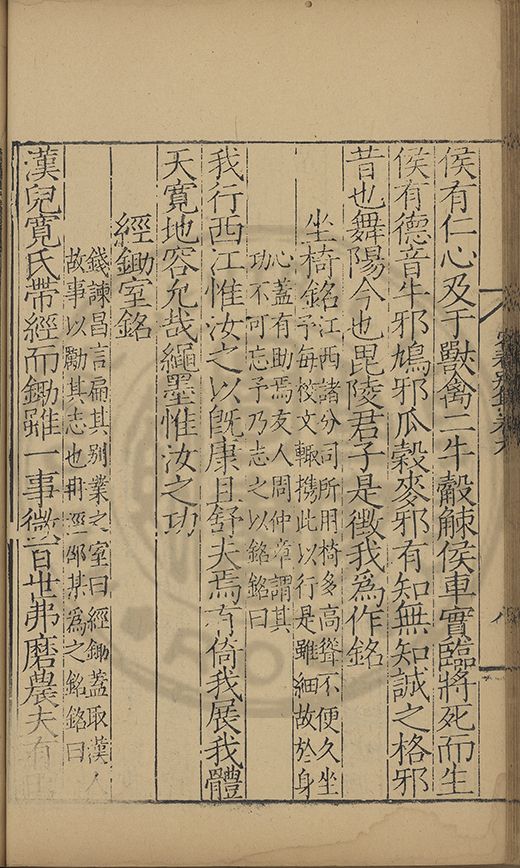 侯有仁心及于獸禽二牛觳觫侯車實臨將死而生
侯有德音牛邪鳩邪瓜穀麥邪有知無知誠之格邪
昔也舞陽今也毘陵君子是徵我爲作銘
坐椅銘
江西諸分司所用椅多高聳不便久坐
予每校文輙攜此以行是雖細故於身
心蓋有助焉友人周仲
謂其
功不可忘予乃志之以銘銘曰
我行西江惟汝之以旣康且舒夫焉有倚我展我體
天寬地容允哉繩墨惟汝之功
經鋤室銘
錢諫昌言扁其别業之室曰經鋤蓋取漢人
故事以勵其志也
某爲之銘銘曰
漢兒寬氏帶經而鋤雖一事微百世弗磨農夫有